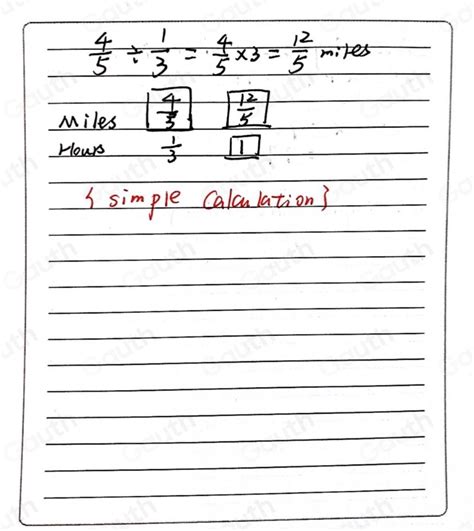 4/5 ÷ 1/3 = 4/5 × 3 = 12/5 miles
Miles 4/5 12/5
Hours 1/3 1
{ simple calculation }